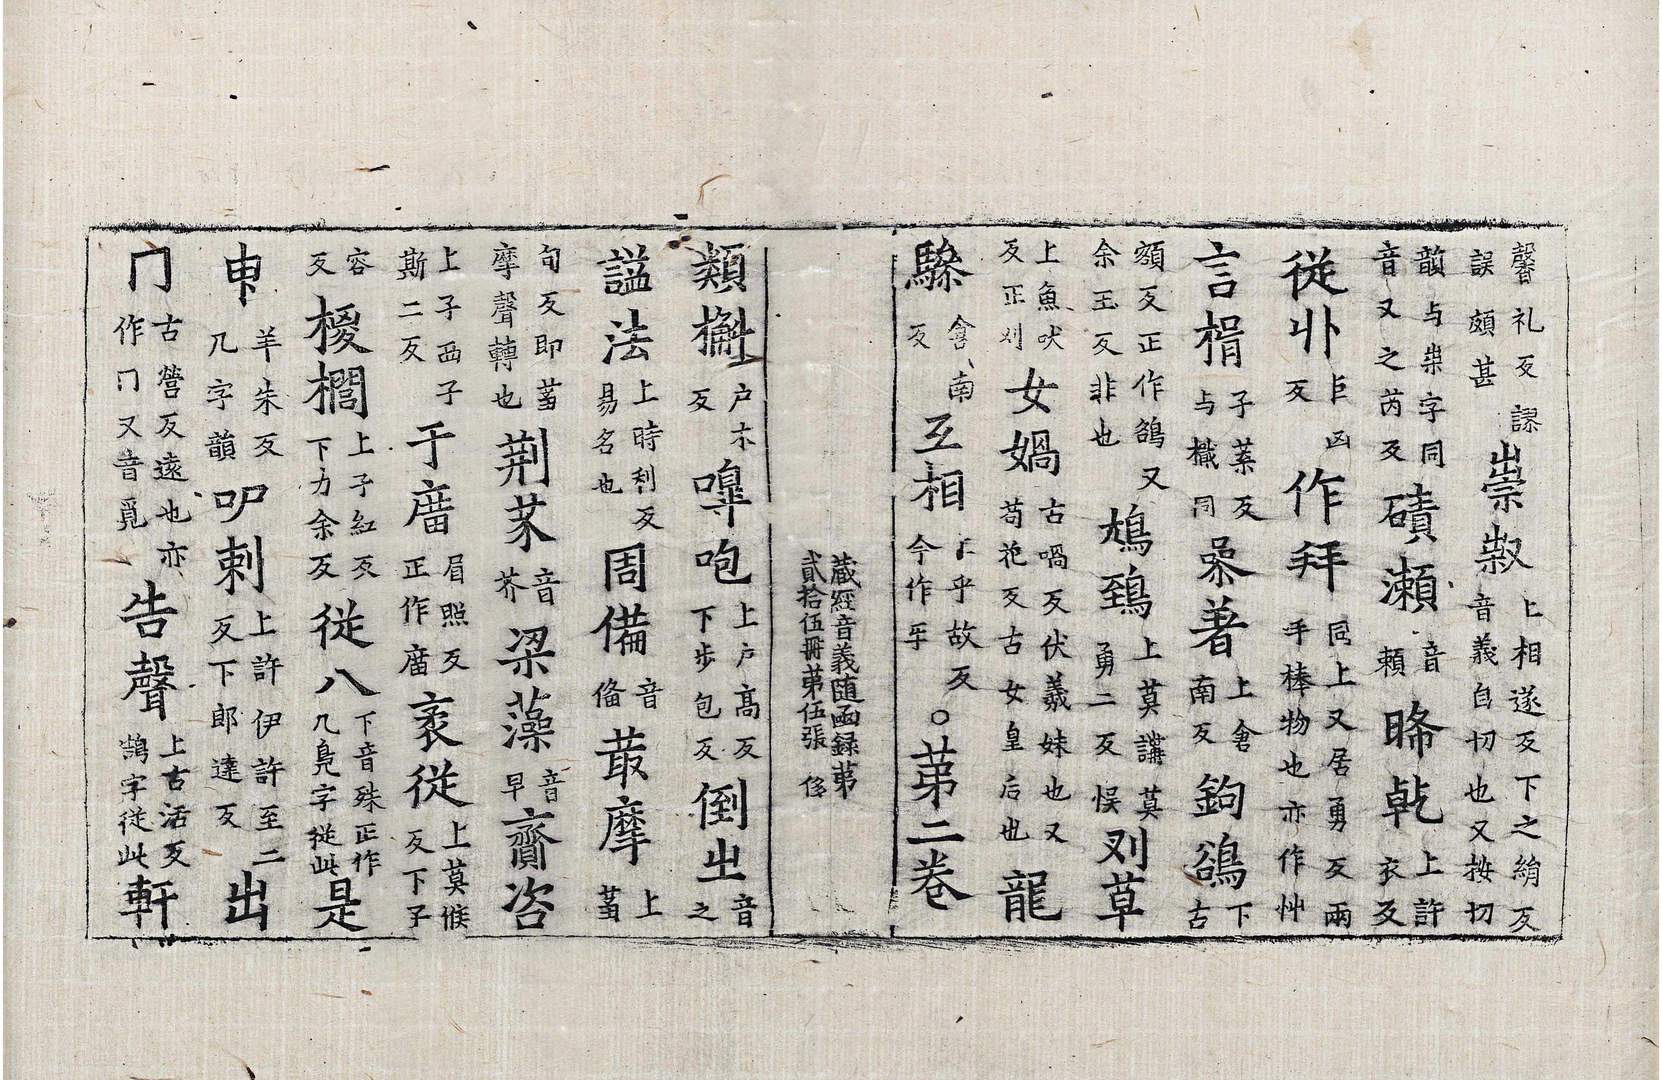 馨礼反謬誤頗甚祟㕞上相遂反下之絹反音義自切也又按切
韻与祟字同音又之芮反磧瀬音頼睎乾上許衣反
従廾巨凶反作拜同上又居勇反兩手棒物也亦作艸
言楫子葉反与檝同喿著上倉南反鉤鵮下古
頟反正作鵅又余玉反非也鴆鵄上莫講莫勇二反悮刘草
上魚吠反正刈女媧古喎反伏羲妹也又苟花反古女皇后也龍
驂倉南反互相乎故反今作㸦○苐二巻
蔵經音義随函録苐貳拾伍冊苐伍張
類檞户木反嘷咆上户高反下步包反倒㞢音之
謚法上時利反易名也周備音俻菆摩上
旬反即䓝摩聲轉也荆芥音芥梁藻音早齎咨
上子西子斯二反于廣眉照反正作庿袤従上莫候反下子
容反椶櫚上子紅反下力余反従八下音殊正作几鳧字従此是
申羊朱反几字韻叩剌上許伊許至二反下郎達反出
冂古營反遠也亦作冂又音覓告聲上古活反鵠字従此軒